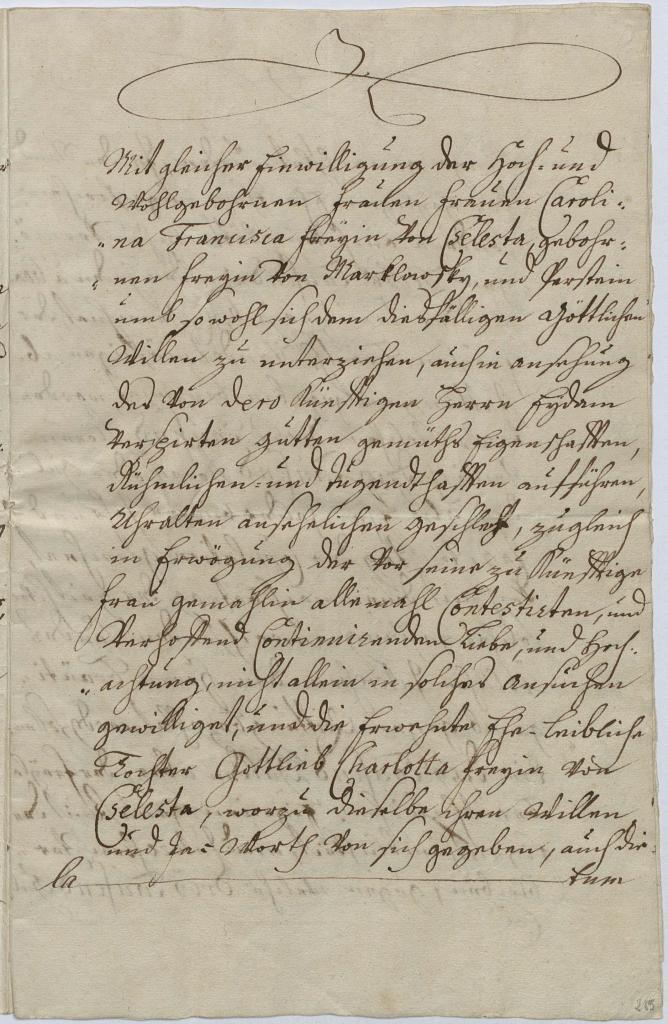 Mit gleicher Einwilligung der Hoch- und
Wohlgebohrnen Frauen Frauen Caroli-
na Francisca Freyin von Cselesta, gebohr-
nen Freyin von Marklowsky, und Perstein
umb so wohl sich dem diesfälligen Göttlichen
Willen zu unterziehen, auch in ansehung
des von dero Künfftigen Herrn Eydam
verspirten gutten gemüths Eigenschafften,
Rühmlichen- und tugendthafften aufführen,
Uhralten ansehelichen geschlecht, zugleich
in Erwögung der vor seine zu Künfftige
Frau gemahlin allemahl Contestirten, und
Verhoffend Contienuirenden Liebe, und Hoch-
achtung, nicht allein in solches ansuchen
gewilliget, und die Erwehnte Ehe-leibliche
Tochter Gottlieb Charlotta Freyin von
Cselesta, worzu dieselbe ihren Willen
und Ja-Worth von sich gegeben, auch die
la tum
285